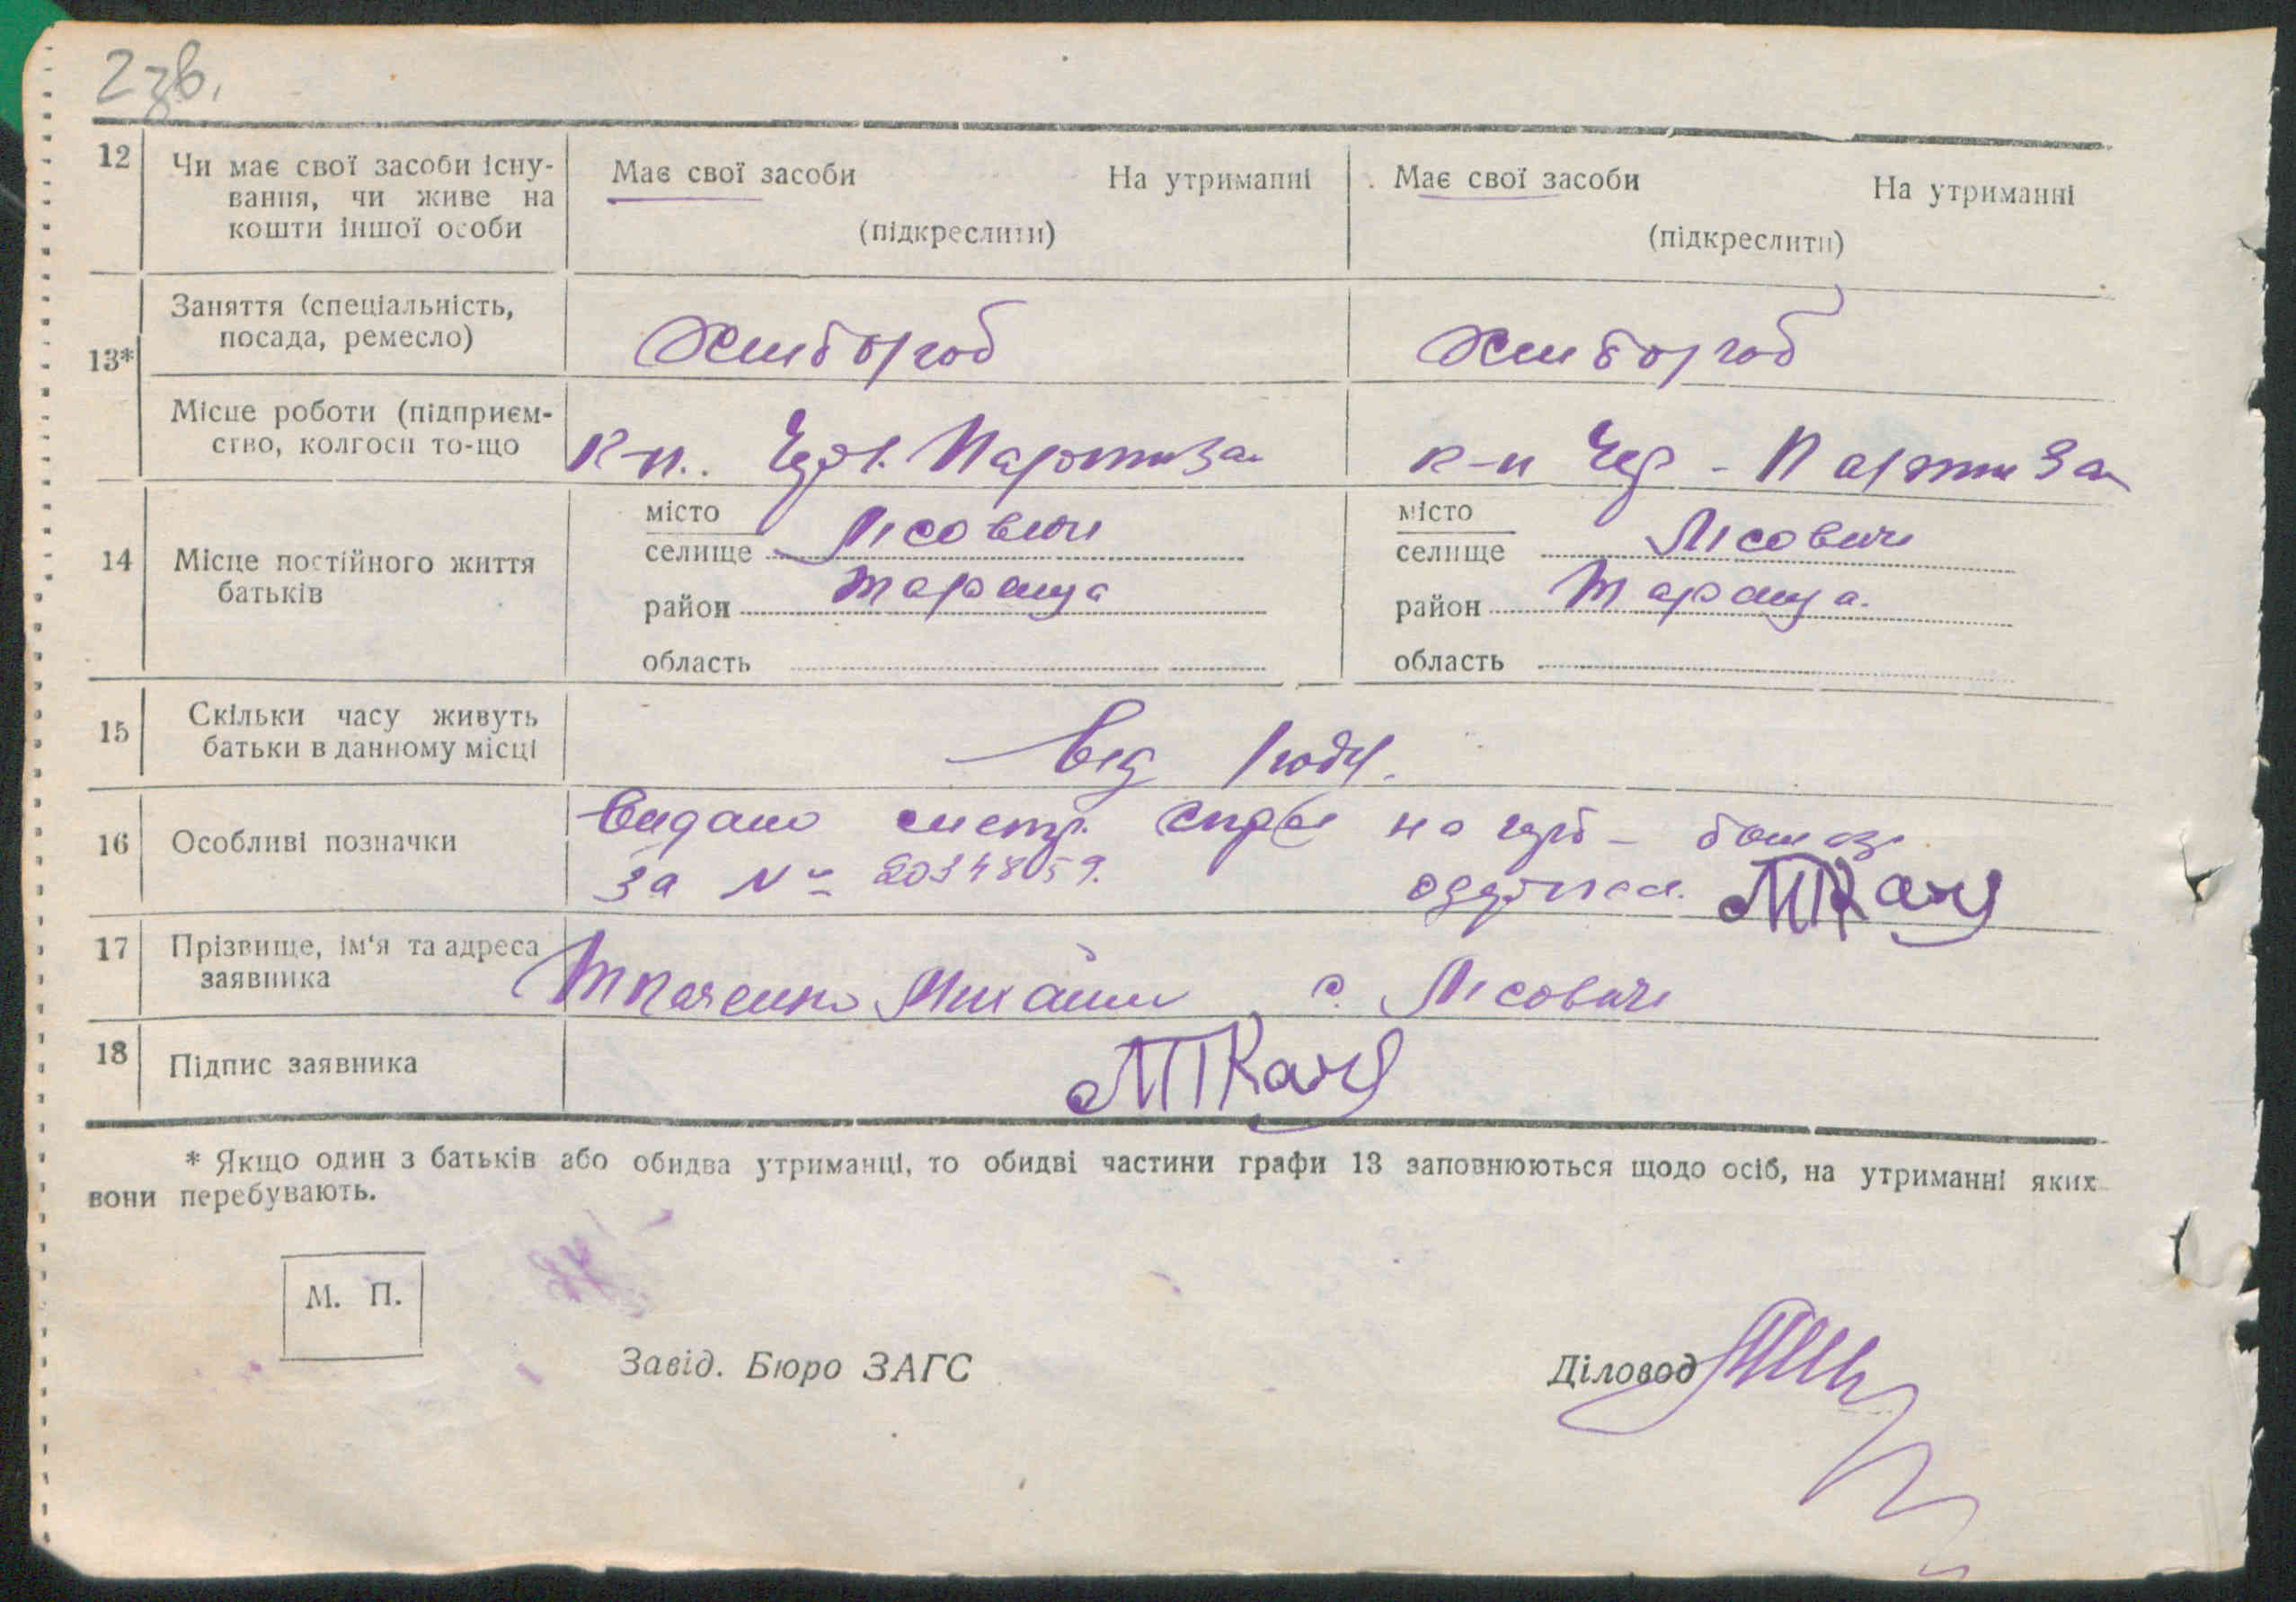 2зв.
12 Чи має свої засоби існу-
вання, чи живе на
кошти іншої особи
Має свої засоби На утриманні
(підкреслити)
Має свої засоби На утриманні
(підкреслити)
13*
Заняття (спеціальність,
посада, ремесло)
Хлібороб
Хлібороб
Місце роботи (підприєм-
ство, колгосп то-що
к-п. Черв. Партизан
к-п Чер - Партизан
14 Місце постійного життя
батьків
місто
селище Лісовичі
район Тараща
область
місто
селище Лісовичі
район Тараща.
область
15 Скільки часу живуть
батьки в данному місці
Від
16 Особливі позначки
Видано
за № 2034859.
МТкач
17 Прізвище, ім'я та адреса
заявника
Ткаченко Михайло с. Лісовичі
18 Підпис заявника
МТкач
* Якщо один з батьків або обидва утриманці, то обидві частини графи 13 заповнюються щодо осіб, на утриманні яких
вони перебувають.
М. П.
Завід. Бюро ЗАГС
Діловод